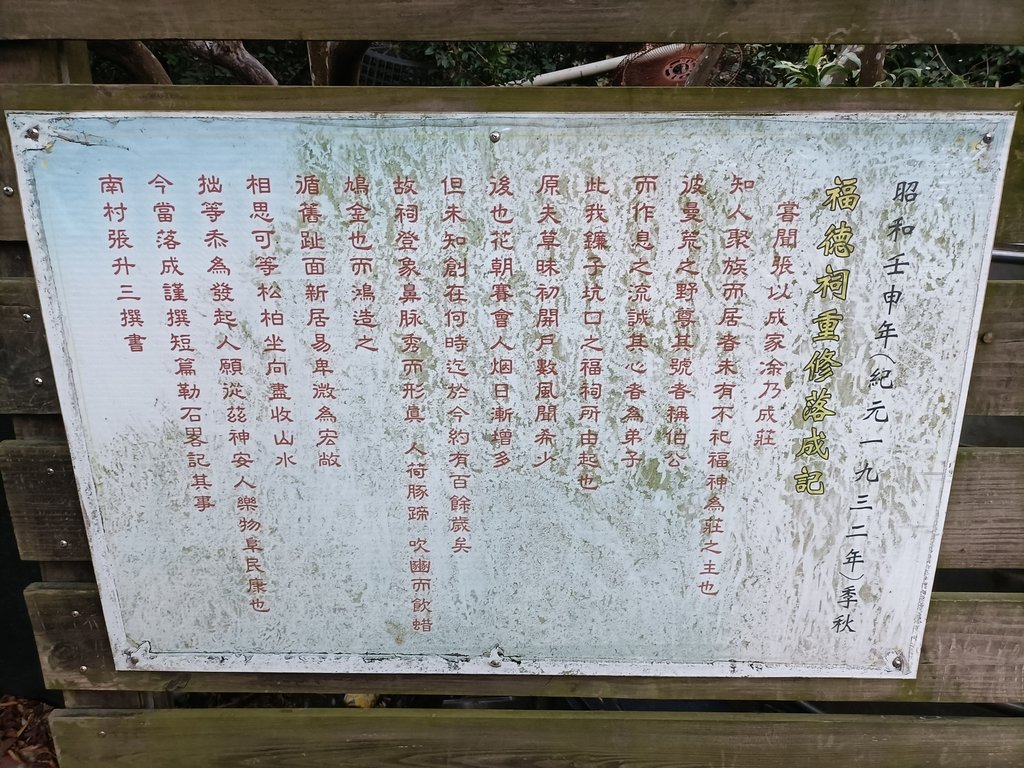 昭和壬申年(紀元一九三二年)季秋
福德祠重修落成記
嘗聞張以成家凃乃成莊
知人聚族而居者未有不祀福神為莊之主也
彼曼荒之野尊其號者稱伯公
而作息之流誠其心者為弟子
此我鐮子坑口之福祠所由起也
原夫草昧初開戶數風聞希少
後也花朝賽會人烟日漸增多
但未知創在何時迄於今約有百餘歲矣
故祠登象鼻脉秀而形真 人荷豚蹄 吹豳而飲蜡
鳩金也而鴻造之
循舊趾面新居易卑微為宏敞
相思可等松柏坐向盡收山水
拙等忝為發起人願從茲神安人樂物阜民康也
今當落成謹撰短篇勒石畧記其事
南村張升三撰書